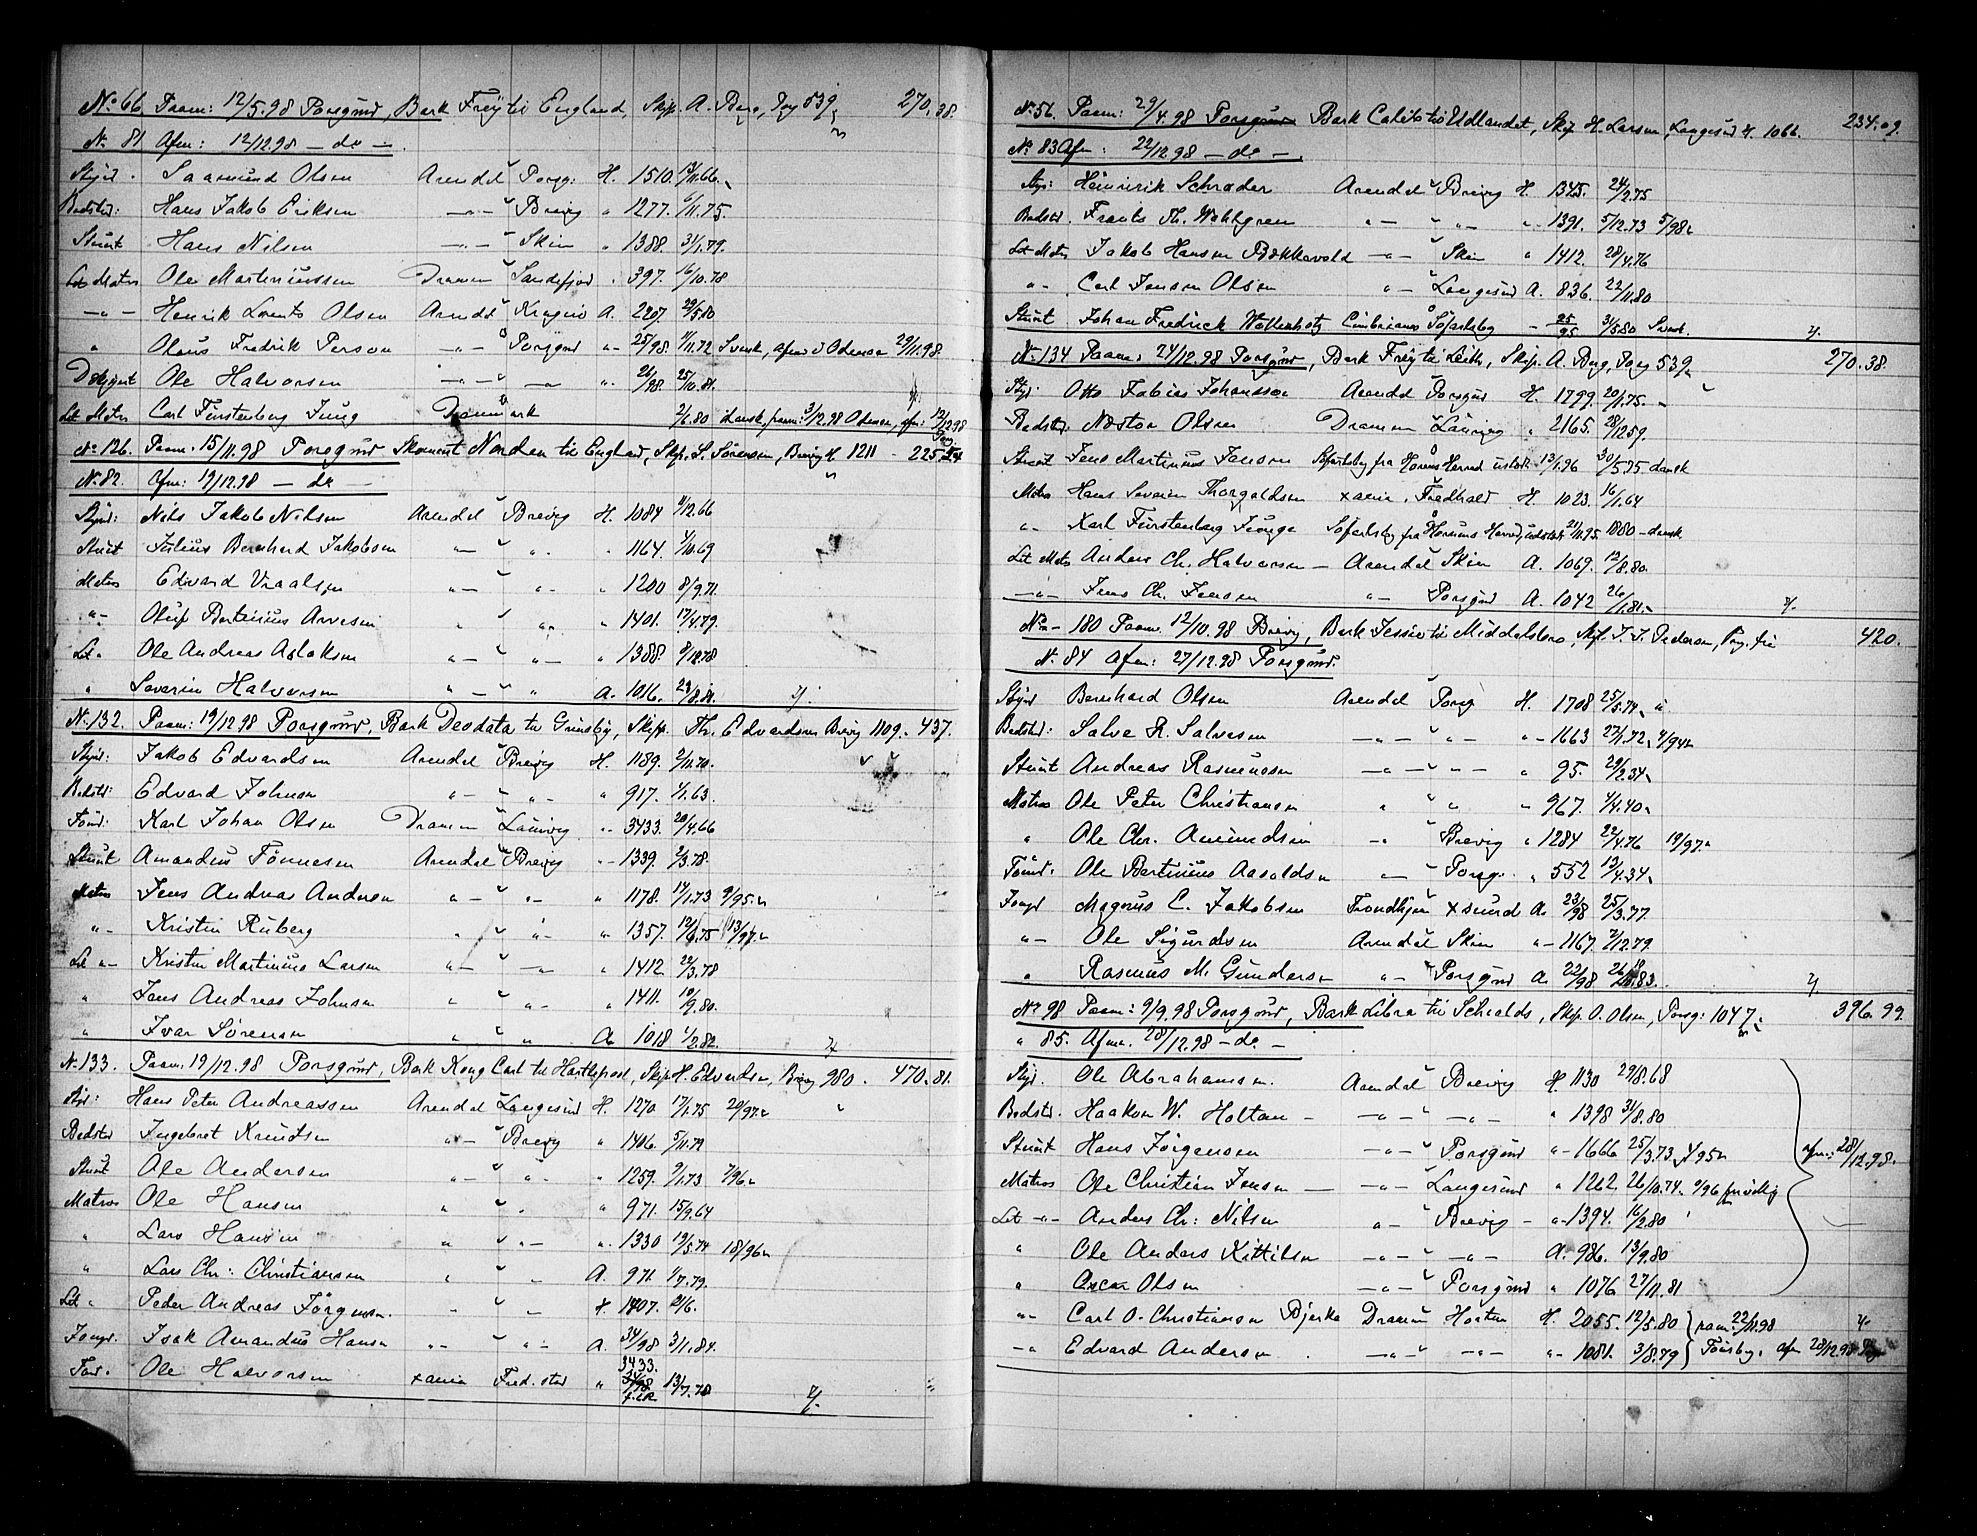 No 66. Paam: 12/5.98 Porsgrund, Bark Freij til England, Skip. A. Berg, Porg 539, 270.38.
No 81 Afm: 12/12.98 — do —
Styrd. Saamund Olsen Arendal Porsg: H. 1510. 13/11.66.
Bedstd: Hans Jakob Eriksen —"— Brevig " 1277. 6/11.75.
Stuurt Hans Nilsen —"— Skien " 1388. 31/1.79.
Let Matros Ole Martiniussen Dramen Sandefjord " 397. 16/10.78
—"— Henrik Lorents Olsen Arendal Kragerø A. 2207. 29/5.80
" Olaus Fredrik Person —"— Porsgrund "- 25/98. 4/11.72 Svensk, afm. i Odense 29/11.98.
Dækgut Ole Halvorsen —"— — " 26/98. 25/10.81.
Let Matros Carl Fürstenberg Jung Danmark 2/6.80 dansk, paam: 3/12.98 Odense, afm: 12/12.98
No 126. Paam. 15/11.98 Porsgrund Skonnert Norden til England, Skip. S. Sørensen, Brevig H. 1211 - 225.54
No 82. Afm: 19/12.98 — do —
Styrd: Nils Jakob Nilsen Arendal Brevig H. 1084 11/12.66
Stuurt Julius Bernhard Jakobsen "— " " 1164. 4/10.69
Matros Edvard Vraalsen "- "- " 1200 8/9.71.
"- Oluf Bertinius Arvesen " " " 1401. 17/4.79.
Let " Ole Andreas Aslaksen "- "- " 1388. 9/12.78
" Severin Halvorsen "- " A. 1016. 23/8.81.
No 132. Paam: 19/12.98 Porsgrund, Bark Deodata til Grimsby, Skip. Th. Edvardsen Brevig 1109. 437.
Styrd: Jakob Edvardsen Arendal Brevig H. 1189. 2/11.70.
Bedstd: Edvard Johnsen "- "- " 917. 1/1.63.
Tømd: Karl Johan Olsen Dramen Laurvig " 3433. 20/4.66
Stuurt Amandus Tønnesen Arendal Brevig "- 1339. 2/3.78.
Matros Jens Andreas Andersen "- "- " 1178. 14/1.73 9/95.
"- Kristen Ruberg " "- "- 1357. 12/6.75 13/97.
Let "- Kristen Martinius Larsen "- —"— " 1412 22/3.78
" Jens Andreas Johnsen " "- " 1411. 10/9.80.
" Ivar Sørensen " " A. 1018 4/2.82.
No 133. Paam: 19/12.98 Porsgrund, Bark Kong Carl til Hartlepool, Skip. H. Edvardsen, Brevig 980. 470.81.
Styd: Hans Peter Andreassen Arendal Langesund H. 1270. 17/1.75 20/97.
Bedstd Ingebret Knudsen "- Brevig " 1406. 5/11.79
Stuurt Ole Andersen "- "- " 1259. 9/1.73 7/96.
Matros Ole Hansen " " " 971. 15/9.64
" Lars Hansen " "- " 1330 19/5.74 18/96
" Lars Chr: Christiansen " " A. 971 1/7.79.
Let " Peder Andreas Jørgensen. " " H. 1407.
Jongd. Isak Amandus Hansen "- "- A. 34/98 3/11.84.
Tømd. Ole Halvorsen Xania Fredstad " 3433. 13/7.78
No 56. Paam: 29/4.98 Porsgrund Bark Calito til Udlandet, Skip H. Larsen, Langesund H. 1066. 234.09.
No 83 Afm: 22/12.98 — do —
Styr: Heinrik Schrøder Arendal Brevig H. 1345. 24/2.75
Bedstd. Frants Th. Wahlgren "- "- " 1391. 5/12.73 5/98.
Let Matros Jakob Hansen Bækkevold —"— Skien " 1412. 28/4.76
"- Carl Jensen Olsen "- Langesund A. 836. 22/11.80
Stuurt Johan Fredrick Wollenhotz Cimbrianus Søfartsbog - 25/95 31/5.80 Svensk.
No 134 Paam: 24/12.98 Porsgrund, Bark Freij til Leith, Skip. A. Berg, Porsg 539. 270.38.
Styr: Otto Tobias Johansson Arendal Porsgrund H. 1799. 20/1.75.
Bedstd: Nestor Olsen Dramen Laurvig " 2165. 28/12.59.
Stuurt Jens Martinus Jensen Søfartsbog fra Hornum Herred udstedt 13/1.96 30/5.75 dansk
Matros Hans Severin Thorgaldsen Xania Fredhald H. 1023. 16/1.64
"- Karl Fürstenberg Jeunge Søfartsbog fra Hornum Herred, udstedt 21/11.95 1880 - dansk
Let Matros Anders Ch. Halvorsen — Arendal Skien A. 1069. 12/8.80.
—"— Jens Chr. Jensen "- Porsgrund A. 1042 26/1.81.
No - 180 Paam. 12/10.98 Brevig, Bark Jessie til Middelsbro, Skip. J. J. Pedersen, 420.
No 84 Afm: 27/12.98 Porsgrund.
Styrd Bernhard Olsen Arendal Porsg H. 1708 25/5.74.
Bedstd: Salve R. Salvesen —"— "- "- 1663 27/11.72, 4/94
Stuurt Andreas Rasmussen —"— "- " 95. 29/2.34.
Matros Ole Peter Christiansen " " " 967. 4/4.40.
" Ole Chr. Amundsen -" Brevig " 1284 22/4.76 19/97.
Tømd. Ole Bertinius Aasoldsen "- Porsg. " 552 13/4.34.
Jongd Magnus C. Jakobsen Trondhjem Xsund A. 23/98 25/3.77.
"- Ole Sigurdsen Arendal Skien "- 1167. 2/12.79.
" Rasmus M. Gundersen "- Porsgrund A. 22/98 26/10.83.
No 98 Paam: 9/9.98 Porsgrund, Bark Libra til Schields, Skip O. Olsen, Porsg: 1047. 396.99.
" 85. Afm. 28/12.98 — do —
Styd. Ole Abrahamsen. Arendal Brevig H. 1130 29/8.68
Bedstd. Haakon W. Holtan - —"— —"— " 1398 31/8.80
Stuurt Hans Jørgensen —"— Porsgrund "- 1666 25/3.73. 4/95 afm: 28/12.98.
Matros Ole Christian Jensen —"— Langesund " 1262. 26/10.74. 9/96 frivillig
Let -"- Anders Chr: Nilsen "- Brevig - "- 1394. 16/2.80
" Ole Anders Kittilsen —"— —"— A. 986. 13/9.80
" Oscar Olsen —"— Porsgrund " 1076 27/11.81
"- Carl O. Christiansen Bjerke Dramen Horten H. 2055. 12/5.80 paam: 22/11.98
—"— Edvard Andersen —"— "- "- 1081. 3/8.79 Tønsbg. afm 28/12.98